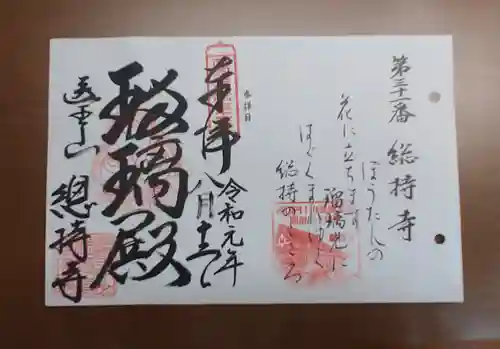 第三十一番 総持寺
ぼうたんの
花に立ちます
瑠璃光に
はぐくまれゆく
総持のこころ
参拝日
奉拝
令和元年
八月十三日
瑠璃殿
医王山 總持寺